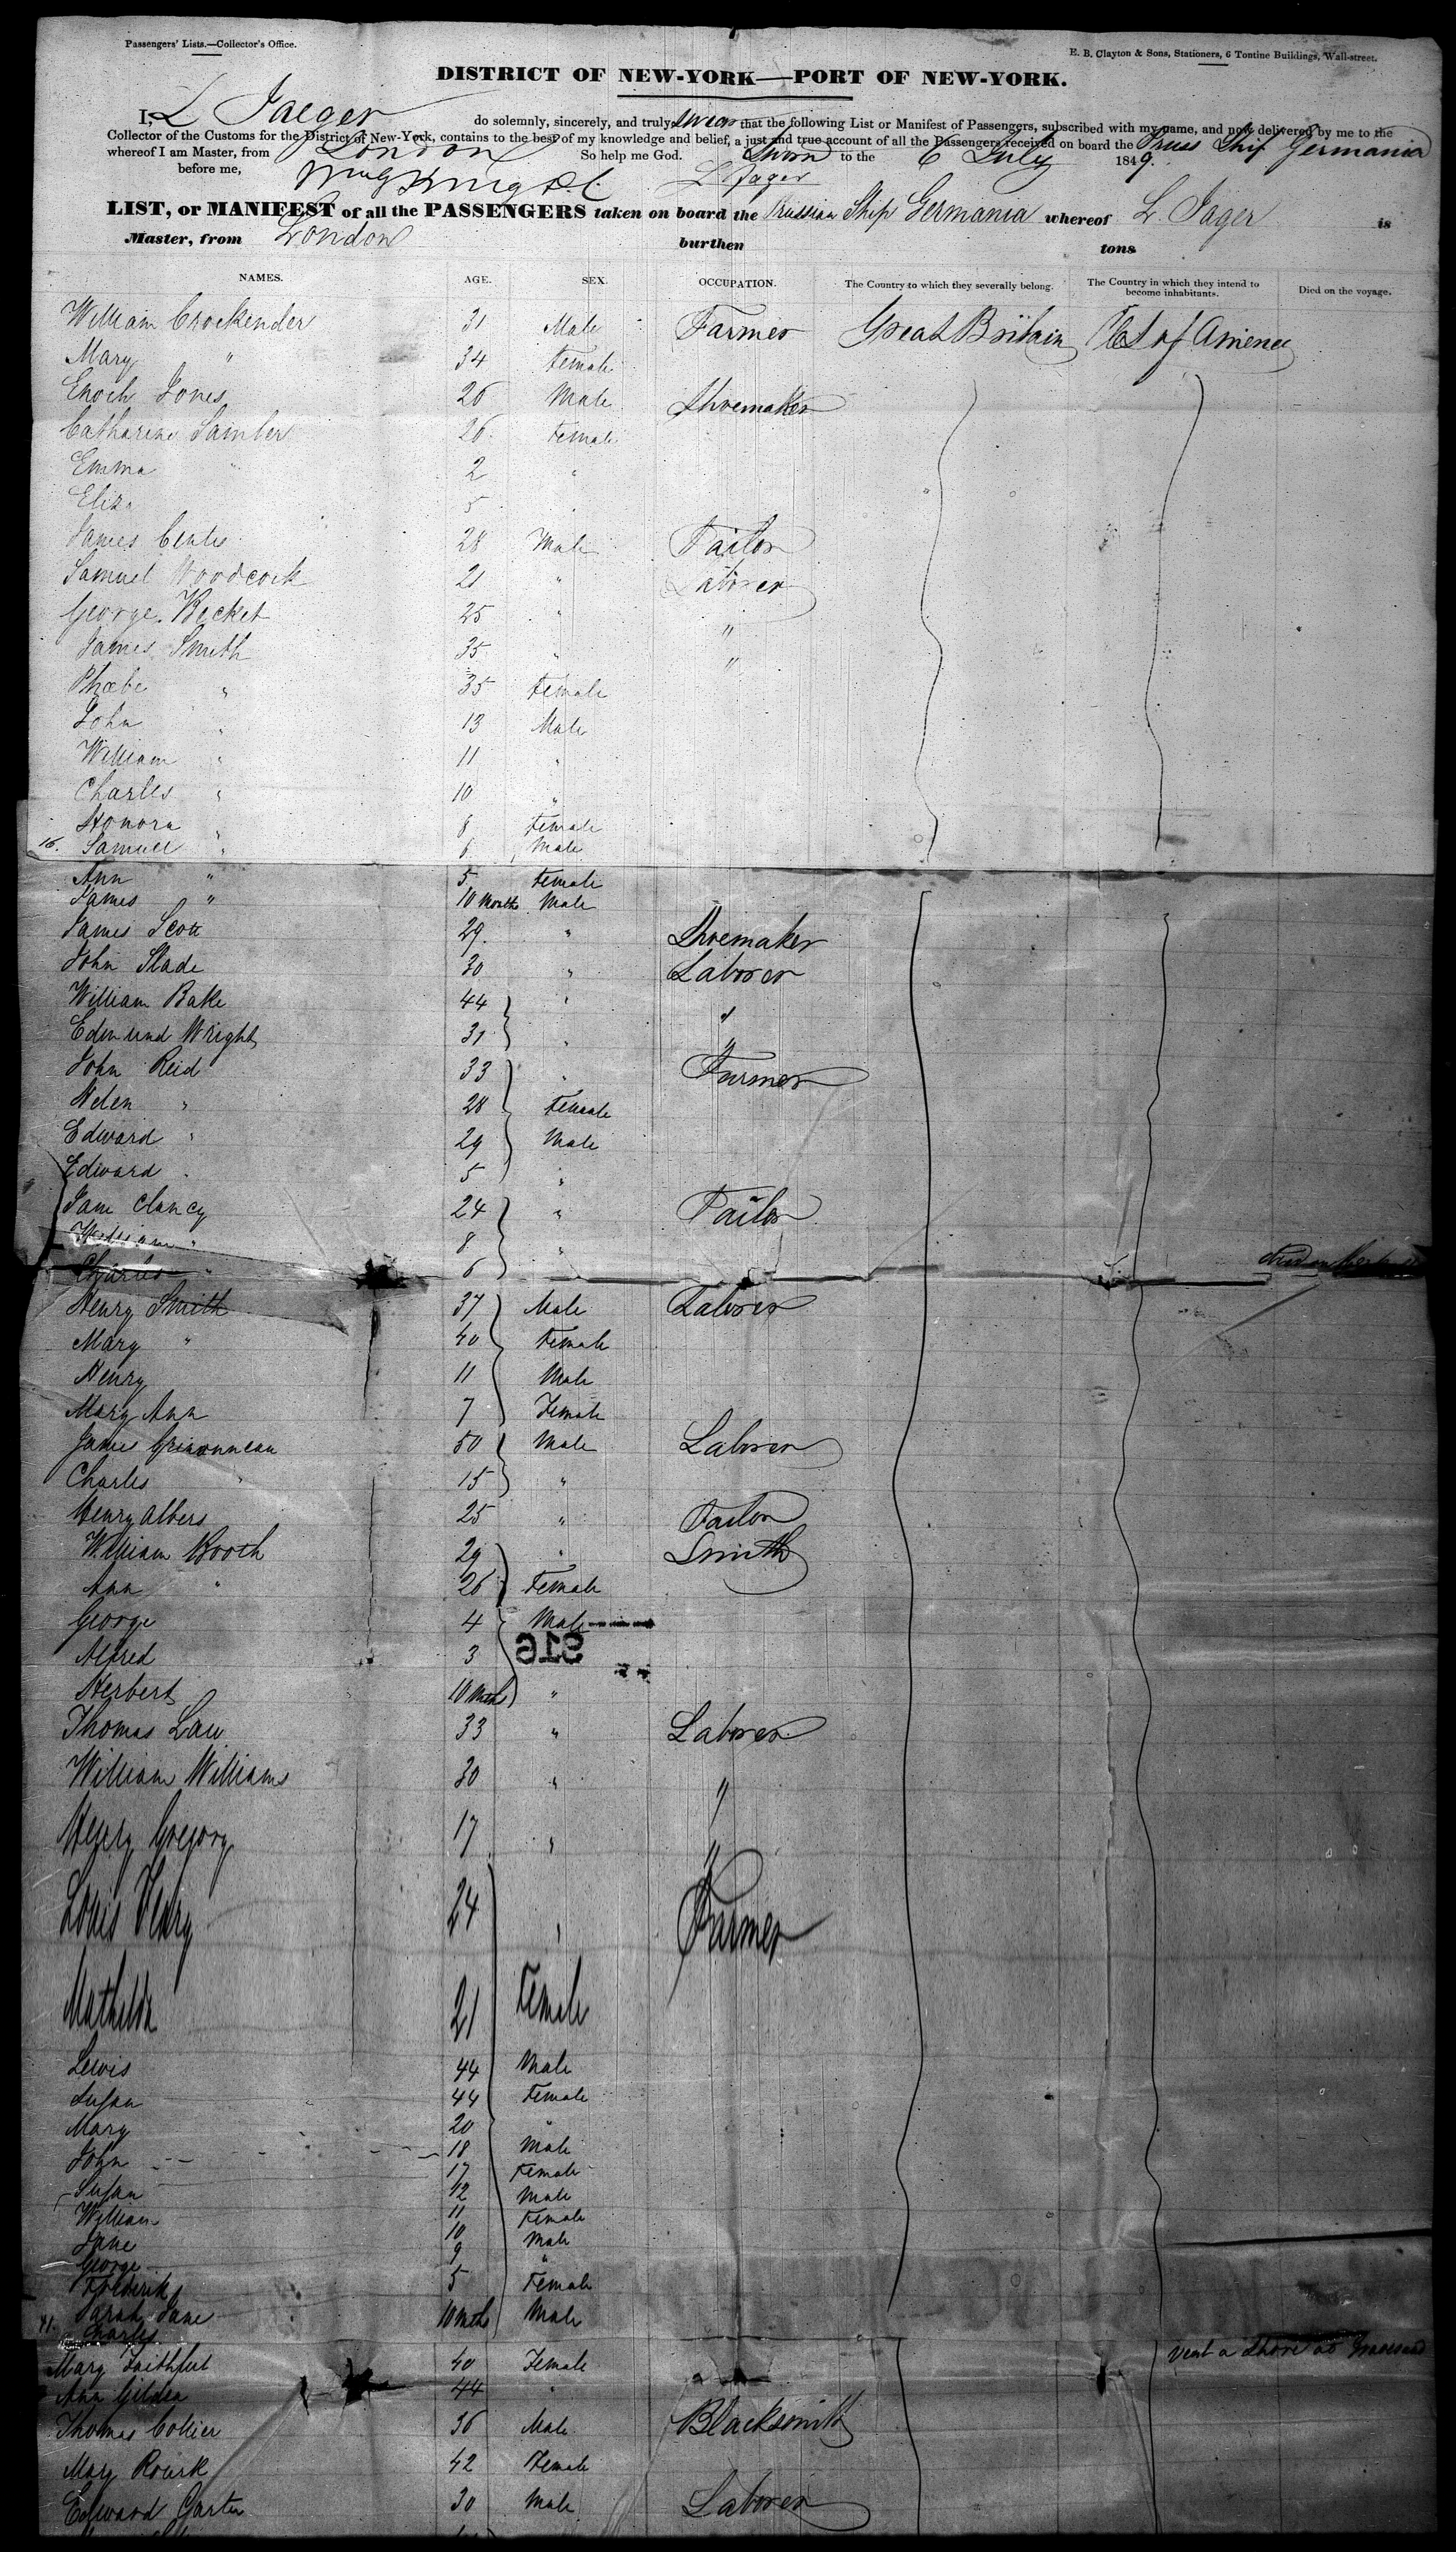 Passengers' Lists.—Collector's Office.
E. B. Clayton & Sons, Stationers, 6 Tontine Buildings, Wall-street.
DISTRICT OF NEW-YORK—PORT OF NEW-YORK.
I, L Jaeger do solemnly, sincerely, and truly swear that the following List or Manifest of Passengers, subscribed with my name, and now delivered by me to the
Collector of the Customs for the District of New-York, contains to the best of my knowledge and belief, a just and true account of all the Passengers received on board the Pruss Ship Germania
whereof I am Master, from London So help me God. Sworn to the 6 July 1849.
before me, L Jager
LIST, or MANIFEST of all the PASSENGERS taken on board the Prussian Ship Germania whereof L. Jager is
Master, from London burthen tons
NAMES. AGE. SEX. OCCUPATION. The Country to which they severally belong. The Country in which they intend to become inhabitants. Died on the voyage.
William Crockender 31 Male Farmer Great Britain of America
Mary " 34 Female
Enoch Jones 26 Male Shoemaker
Catharine 26 Female
Emma " 2 "
Eliza 5
James 28 Male Tailor
Samuel Woodcock 21 " Laborer
George Becket 25 " "
James Smith 35 " "
Phœbe " 35 Female
John " 13 Male
William " 11 "
Charles " 10 "
Honora " 8 Female
16. Samuel " 6 Male
Ann " 5 Female
James " 10 Months Male
James Scott 29 " Shoemaker
John Slade 30 " Laborer
William Bake 44 " "
Edmund Wright 31 " "
John Reid 33 " Farmer
Helen " 28 Female
Edward " 29 Male
Edward 5 "
Clancy 24 " Tailor
William " 8 "
Charles " 6
Henry Smith 37 Male Laborer
Mary " 40 Female
Henry 11 Male
Mary Ann 7 Female
James 50 Male Laborer
Charles " 15 "
Henry Albers 25 " Tailor
William Booth 29 " Smith
Ann " 26 Female
George 4 Male
Alfred 3
916
Herbert 10 Mths "
Thomas Law 33 " Laborer
William Williams 30 " "
Henry Gregory 17 " "
Louis 24 " Farmer
Mathilda 21 Female
Lewis 44 Male
Susan 44 Female
Mary 20 "
John 18 Male
Susan 17 Female
William 12 Male
Jane 11 Female
George 10 Male
Frederik 9 "
Sarah Jane 5 Female
41. Charles 10 Mths Male
Mary Faithfull 40 Female went a shore at Gravesend
Ann Gilden 44 "
Thomas Collier 36 Male Blacksmith
Mary Rourk 42 Female
Edward Garter 30 Male Laborer